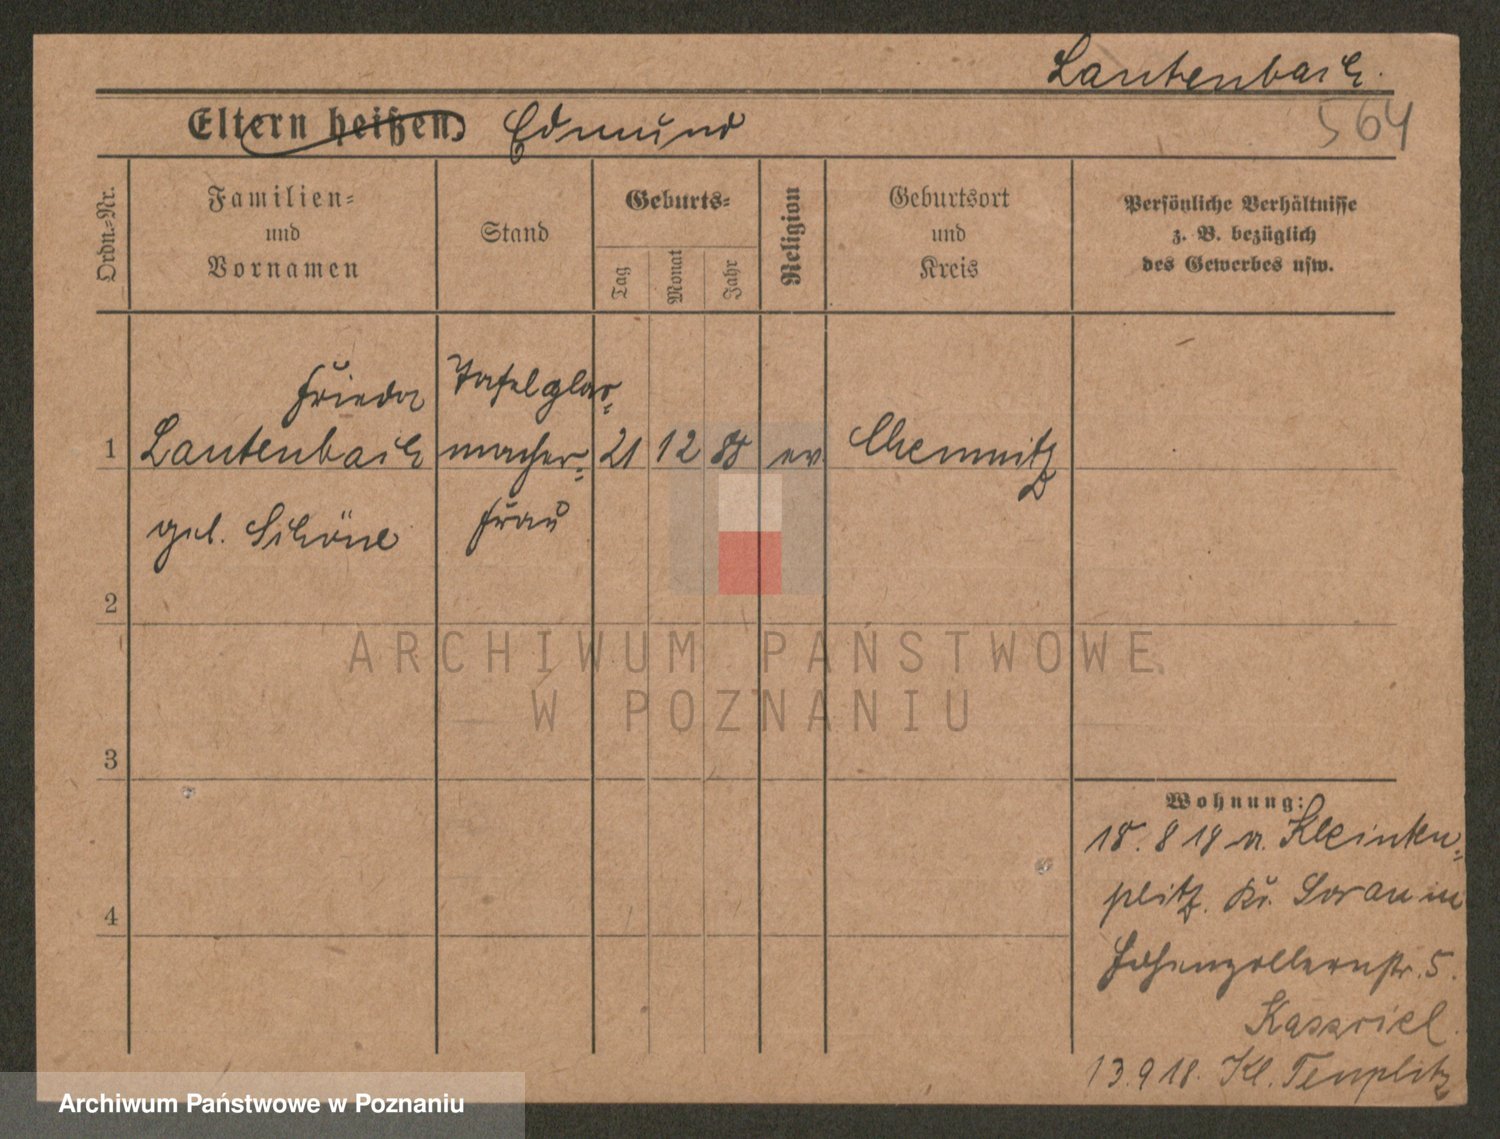 Lautenbach.
564
Eltern heißen: Edmund
Ordn.-Nr.
Familien-
und
Vornamen
Stand
Geburts-
Tag
Monat
Jahr
Religion
Geburtsort
und
Kreis
Persönliche Verhältnisse
z. B. bezüglich
des Gewerbes usw.
Frieda Tafelglas-
1 Lautenbach macher- 21 12 88 ev Chemnitz
geb. Schöne frau
2
ARCHIWUM PAŃSTWOWE
W POZNANIU
3
Wohnung:
18. 8 18 Kleinten-
plitz. Kr. Sorau in
4
Hohenzollernstr. 5.
13.9 18. Kl. Tenplitz
Archiwum Państwowe w Poznaniu